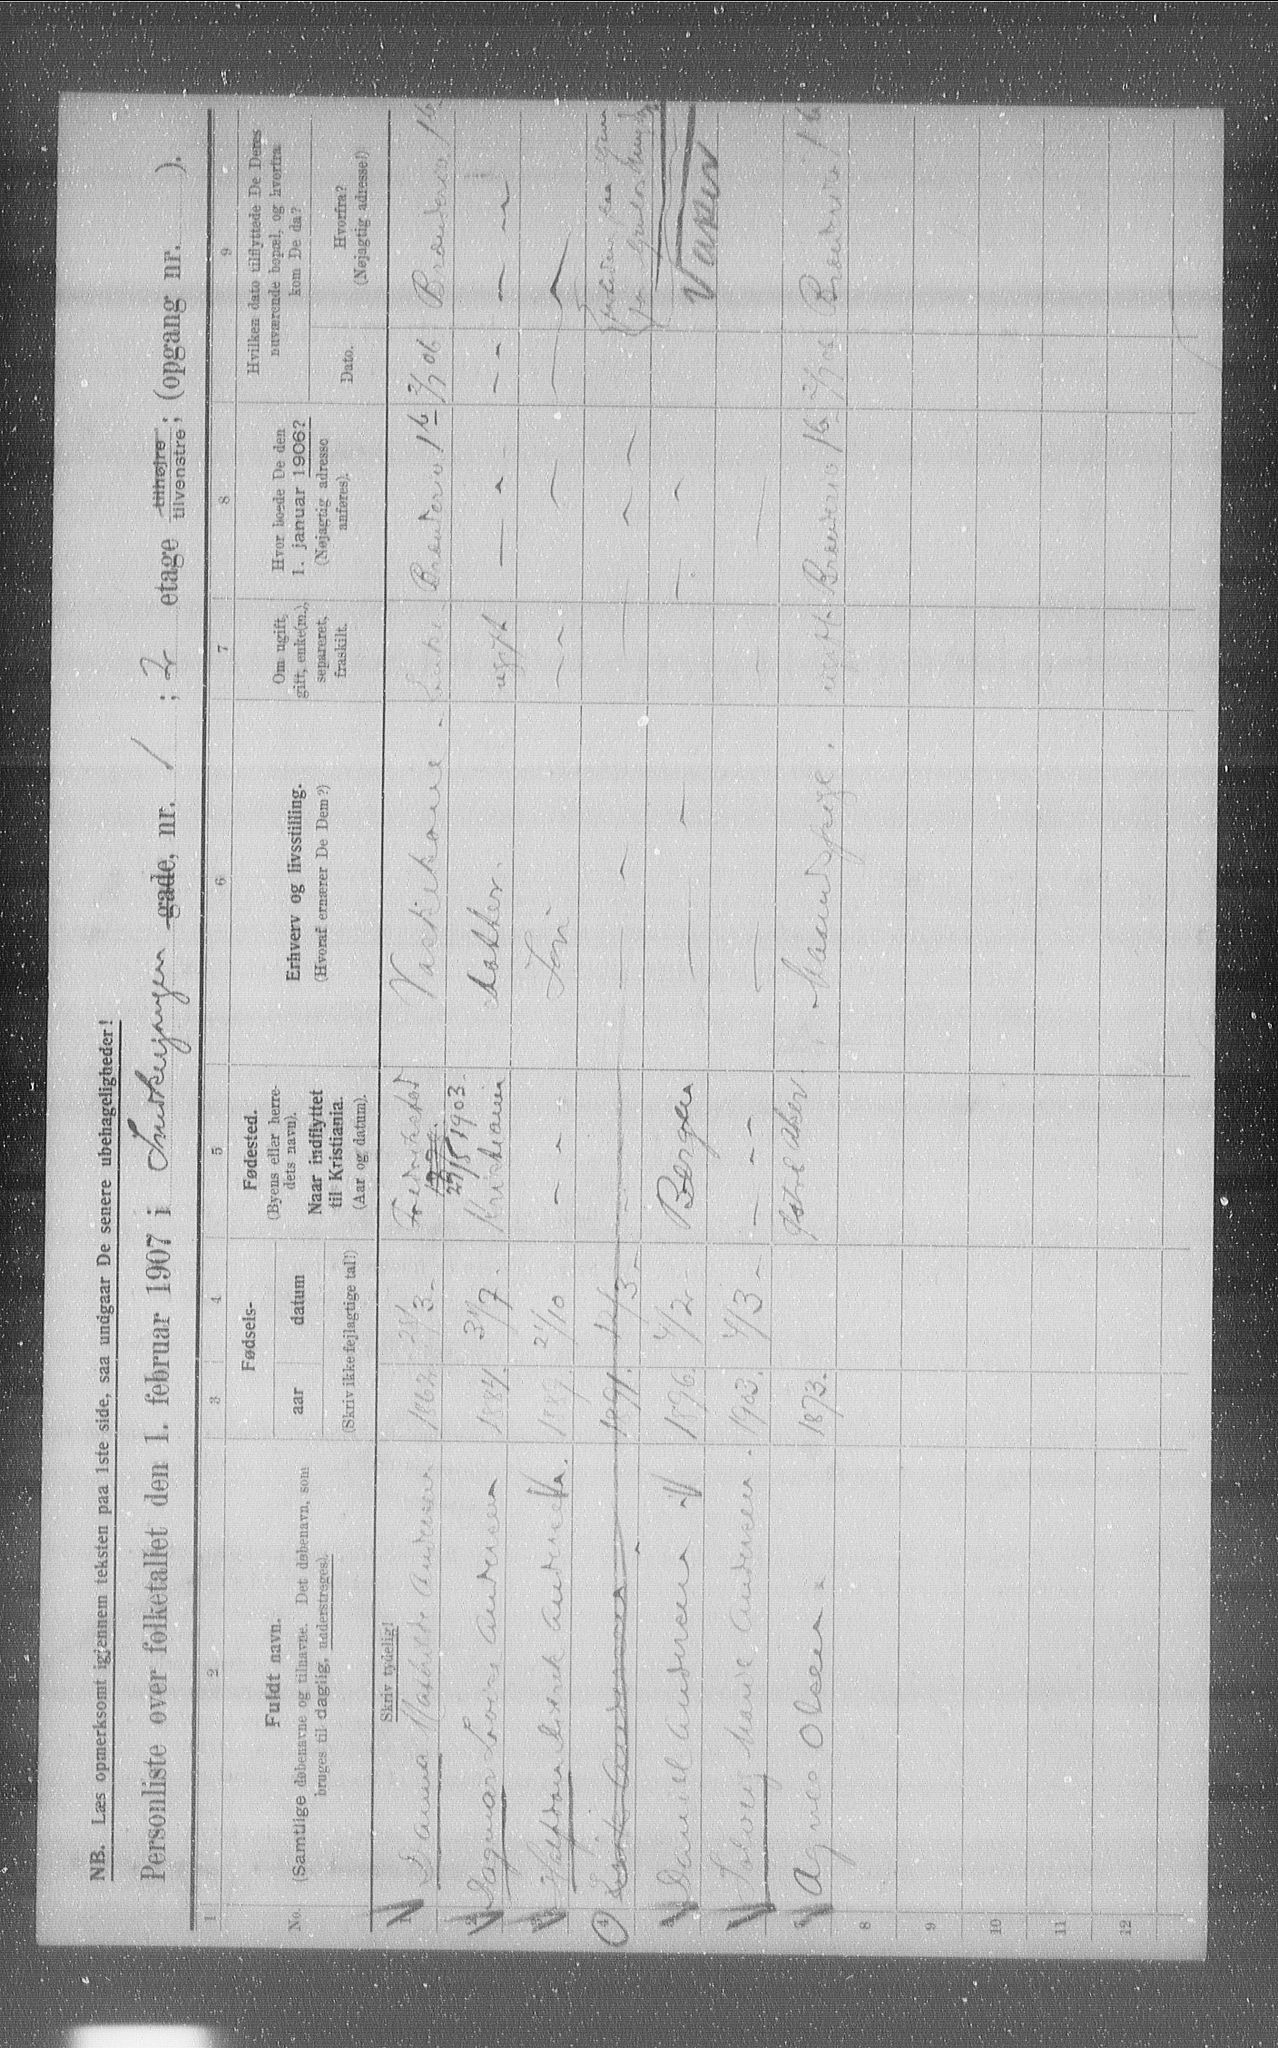 NB. Læs opmerksomt igjennem teksten paa 1ste side, saa undgaar De senere ubehageligheder!
Personliste over folketallet den 1. februar 1907 i Smedkergangen gade, nr. 1 ; 2 etage tilhøjre tilvenstre; (opgang nr. ).
1 2 3 4 5 6 7 8 9
No.
Fuldt navn.
(Samtlige døbenavne og tilnavne. Det døbenavn, som
bruges til daglig, understreges).
Skriv tydelig!
Fødsels-
aar datum
(Skriv ikke fejlagtige tal!)
Fødested.
(Byens eller herre-
dets navn).
Naar indflyttet
til Kristiania.
(Aar og datum).
Erhverv og livsstilling.
(Hvoraf ernærer De Dem?)
Om ugift,
gift, enke(m.),
separeret,
fraskilt.
Hvor boede De den
1. januar 1906?
(Nøjagtig adresse
anføres).
Hvilken dato tilflyttede De Deres
nuværende bopæl, og hvorfra
kom De da?
Dato.
Hvorfra?
(Nøjagtig adresse!)
1 Mathilde Andersen 1862 3 - Fredrikstad 29/5 1903. Vaskekone - enke Brænderiv 16 2/7 06 Brænderiv 16
2 Dagmar Lovise Andersen 1884. 31/7. Kristiania datter. ugift — - - - — -
Andersen. 1887. 21/10 - - Søn - - —
4 Andersen 1891. 3 - — — - — -
Daniel Andersen 1896 4/2 - Bergen — - — -
Solveig Marie Andersen. 1903. 4/3 - - - - — —
Voxen
Agnes Olsen. 1873. Brænderiv 16 2/7 06 Brænderiv 16
8
9
10
11
12